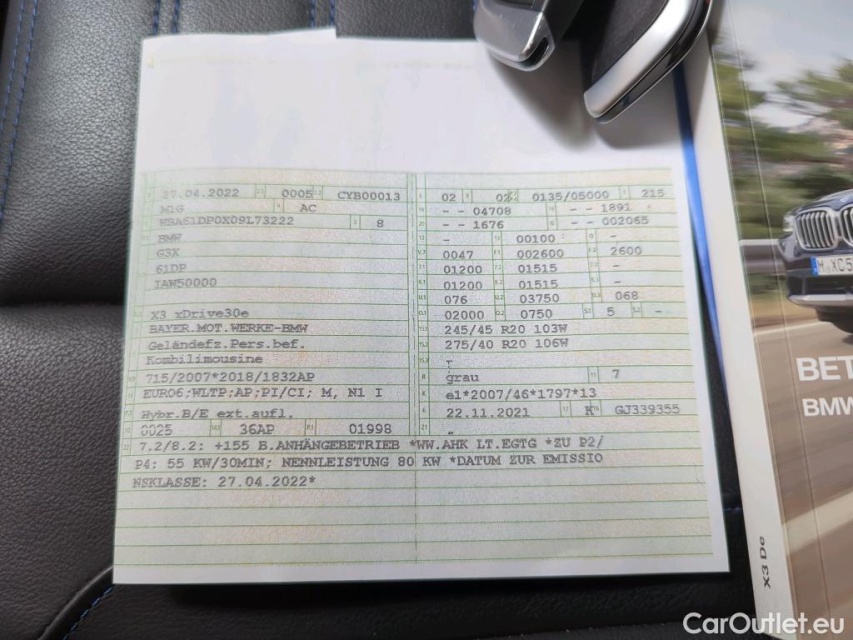 27.04.2022 0005 CYB00013
M1G AC
WBA61DP0X09L73222 8
BMW
G3X
61DP
IAW50000
X3 xDrive30e
BAYER.MOT.WERKE-BMW
Geländefz.Pers.bef.
Kombilimousine
715/2007*2018/1832AP
EURO6;WLTP;AP;PI/CI; M, N1 I
Hybr.B/E ext.aufl.
0025 36AP 01998
02 02 0135/05000 215
- - 04708 - - 1891
- - 1676 - - 002065
- 00100 -
0047 002600 2600
01200 01515 -
01200 01515 -
076 03750 068
02000 0750 5 -
245/45 R20 103W
275/40 R20 106W
grau 7
e1*2007/46*1797*13
22.11.2021 K GJ339355
7.2/8.2: +155 B.ANHÄNGEBETRIEB *WW.AHK LT.EGTG *ZU P2/
P4: 55 KW/30MIN; NENNLEISTUNG 80 KW *DATUM ZUR EMISSIO
NSKLASSE: 27.04.2022*
BET
BMW
X3 De
CarOutlet.eu